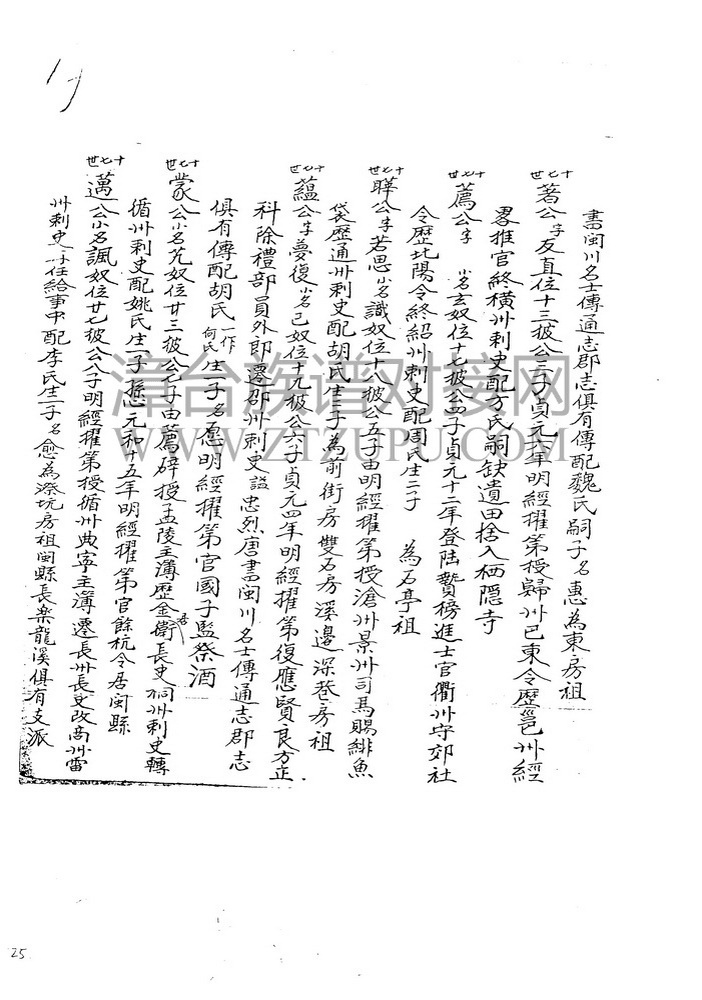 書閩川名士傳通志郡志俱有傳配魏氏嗣子名惠為東房祖
十七世
著公字友直位十三披公三子貞元六年明經擢第授歸州巴東令歷邕州經
畧推官終橫州刺史配方氏嗣缺遺田捨入栖隱寺
十七世
薦公字 小名玄奴位十七披公四子貞元十二年登陸贄榜進士官衢州守郊社
令歷北陽令終紹州刺史配周氏生二子 為石亭祖
十七世
曄公字若思小名識奴位十八披公五子由明經擢第授滄州景州司馬賜緋魚
袋歷通州刺史配胡氏生三子為前街房雙石房溪邊深巷房祖
十七世
蘊公字夢復小名己奴位十九披公六子貞元四年明經擢第復應賢良方正
科除禮部員外郎遷邵州刺史謚忠烈唐書閩川名士傳通志郡志
俱有傳配胡氏一作何氏生一子名愿明經擢第官國子監祭酒
十七世
蒙公小名尤奴位廿三披公七子由薦辟授孟陵主簿歷金吾衛長史 州刺史轉
循州刺史配姚氏生一子愻元和十五年明經擢第官餘杭令居閩縣
十七世
邁公小名諷奴位廿七披公八子明經擢第授循州典寧主簿遷長州長史改商州雷
州刺史 任給事中配李氏生一子名愈為漈坑房祖閩縣長樂龍溪俱有支派
25
漳台族谱对接网
WWW.ZTZUPU.COM